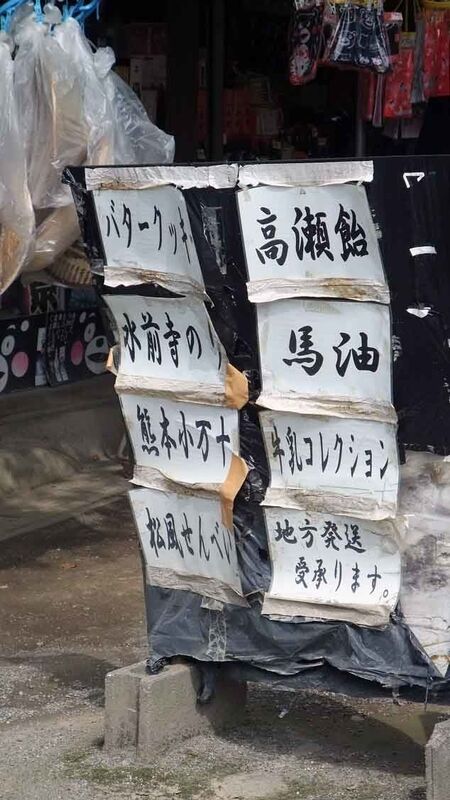 バタークッキ
水前寺のり
熊本小万十
松風せんべい
高瀬飴
馬油
牛乳コレクション
地方発送
受承ります。